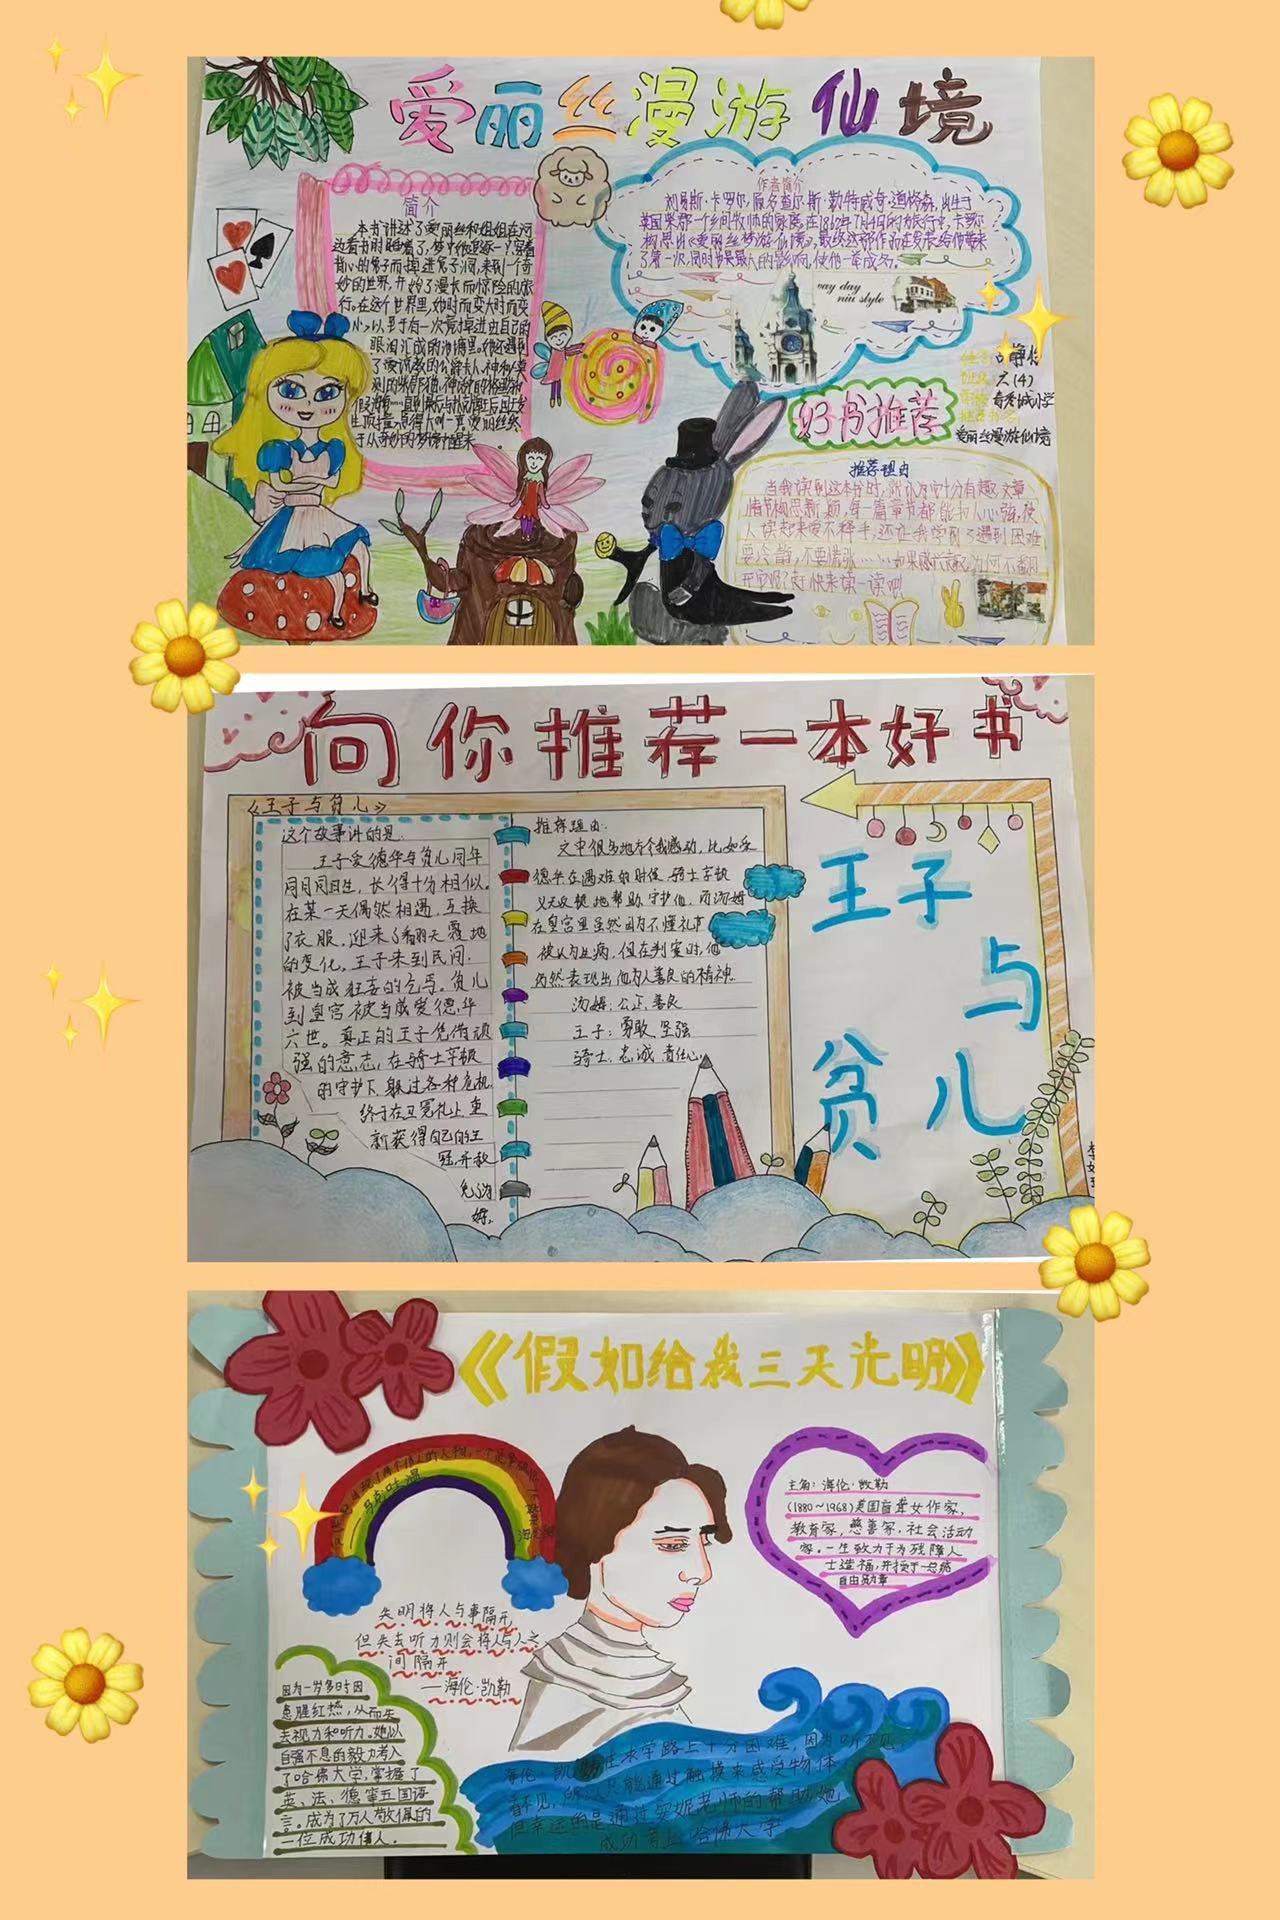 爱丽丝漫游仙境
简介
本书讲述了爱丽丝和姐姐在河
边看书时睡着了,梦中他追逐一只穿着
背心的兔子而掉进兔子洞,来到一个奇
妙的世界,开始了漫长而惊险的旅
行。在这个世界里,她时而变大时而变
小,以至于有一次竟掉进由自己的
眼泪汇成的池塘里。她还遇到
了爱说教的公爵夫人,神秘莫
于从奇妙的梦境中醒来
作者简介
刘易斯·卡罗尔,原名查尔斯·勒特威奇·道格森,出生于
英国柴郡一个乡间牧师的家庭,在1862年7月4日的旅行中,卡罗尔
构思出《爱丽丝梦游仙境》,最终这部作
了第一次,同时也是最大的影响,使他一举成名。
vay day
niu style
六(4)
爱丽丝漫游仙境
好书推荐
推荐理由
当我读到这本书时,就认为它十分有趣,文章
情节构思新颖,每一篇章节都能扣人心弦,使
人读起来爱不释手,还让我学到了遇到困难
要冷静,不要慌张……如果感兴趣,为何不翻
开审呢?赶快来读一读吧
向你推荐一本好书
《王子与贫儿》
这个故事讲的是:
王子爱德华与贫儿同年
同月同日生,长得十分相似。
在某一天偶然相遇,互换
了衣服,迎来了翻天覆地
的变化。王子来到民间,
被当成狂妄的乞丐。贫儿
到皇宫被当成爱德华
六世。真正的王子凭借顽
强的意志,在骑士亨顿
的守护下,躲过各种危机,
终于在卫冕礼上重
新获得自己的王
冠,并赦
免汤
姆。
推荐理由:
文中很多地方令我感动,比如爱
德华在遇难的时候,骑士亨顿
义无反顾地帮助、守护他,而汤姆
在皇宫里虽然因为不懂礼节
被认为生病,但在判案时,他
仍然表现出他为人善良的精神
汤姆:公正、善良
王子:勇敢、坚强
骑士:忠诚、责任心
王子
与
贫儿
《假如给我三天光明》
——马克·吐温
主角:海伦·凯勒
(1880~1968)美国盲聋女作家,
教育家,慈善家,社会活动
家。一生致力于为残障人
士造福,并授予-总统
自由勋章
失明将人与事隔开,
但失去听力则会将人与人之
间隔开
——海伦·凯勒
因为一岁多时因
患猩红热,从而失
去视力和听力。她以
自强不息的毅力考入
了哈佛大学,掌握了
英、法、德等五国语
言。成为了万人敬佩的
一位成功伟人。
海伦·凯勒在求学路上十分困难,因为听不见,
看不见,所以只能通过触摸来感受物体,
但幸运的是通过安妮老师的帮助,她
成功考上哈佛大学